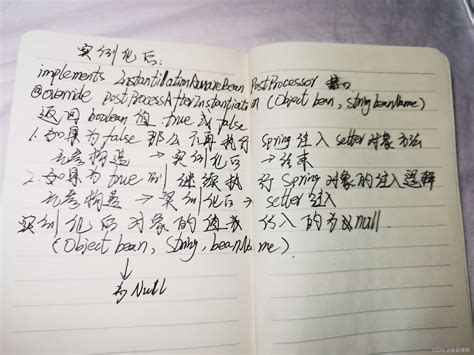 实例化后:
implements InstantiationAwareBeanPostProcessor 接口
@override postProcessAfterInstantiation (Object bean, String beanName)
返回 boolean 值 true 或 false
1. 如果为 false 那么不再执行 Spring 注入 setter 对象方法
无参构造 → 实例化后 → 结束
2. 如果为 true 则 继续执行 Spring 对象的注入逻辑
无参构造 → 实例化后 → setter 注入
实例化后对象的 传入的为 null
(Object bean, String, beanName)
↓
为 Null